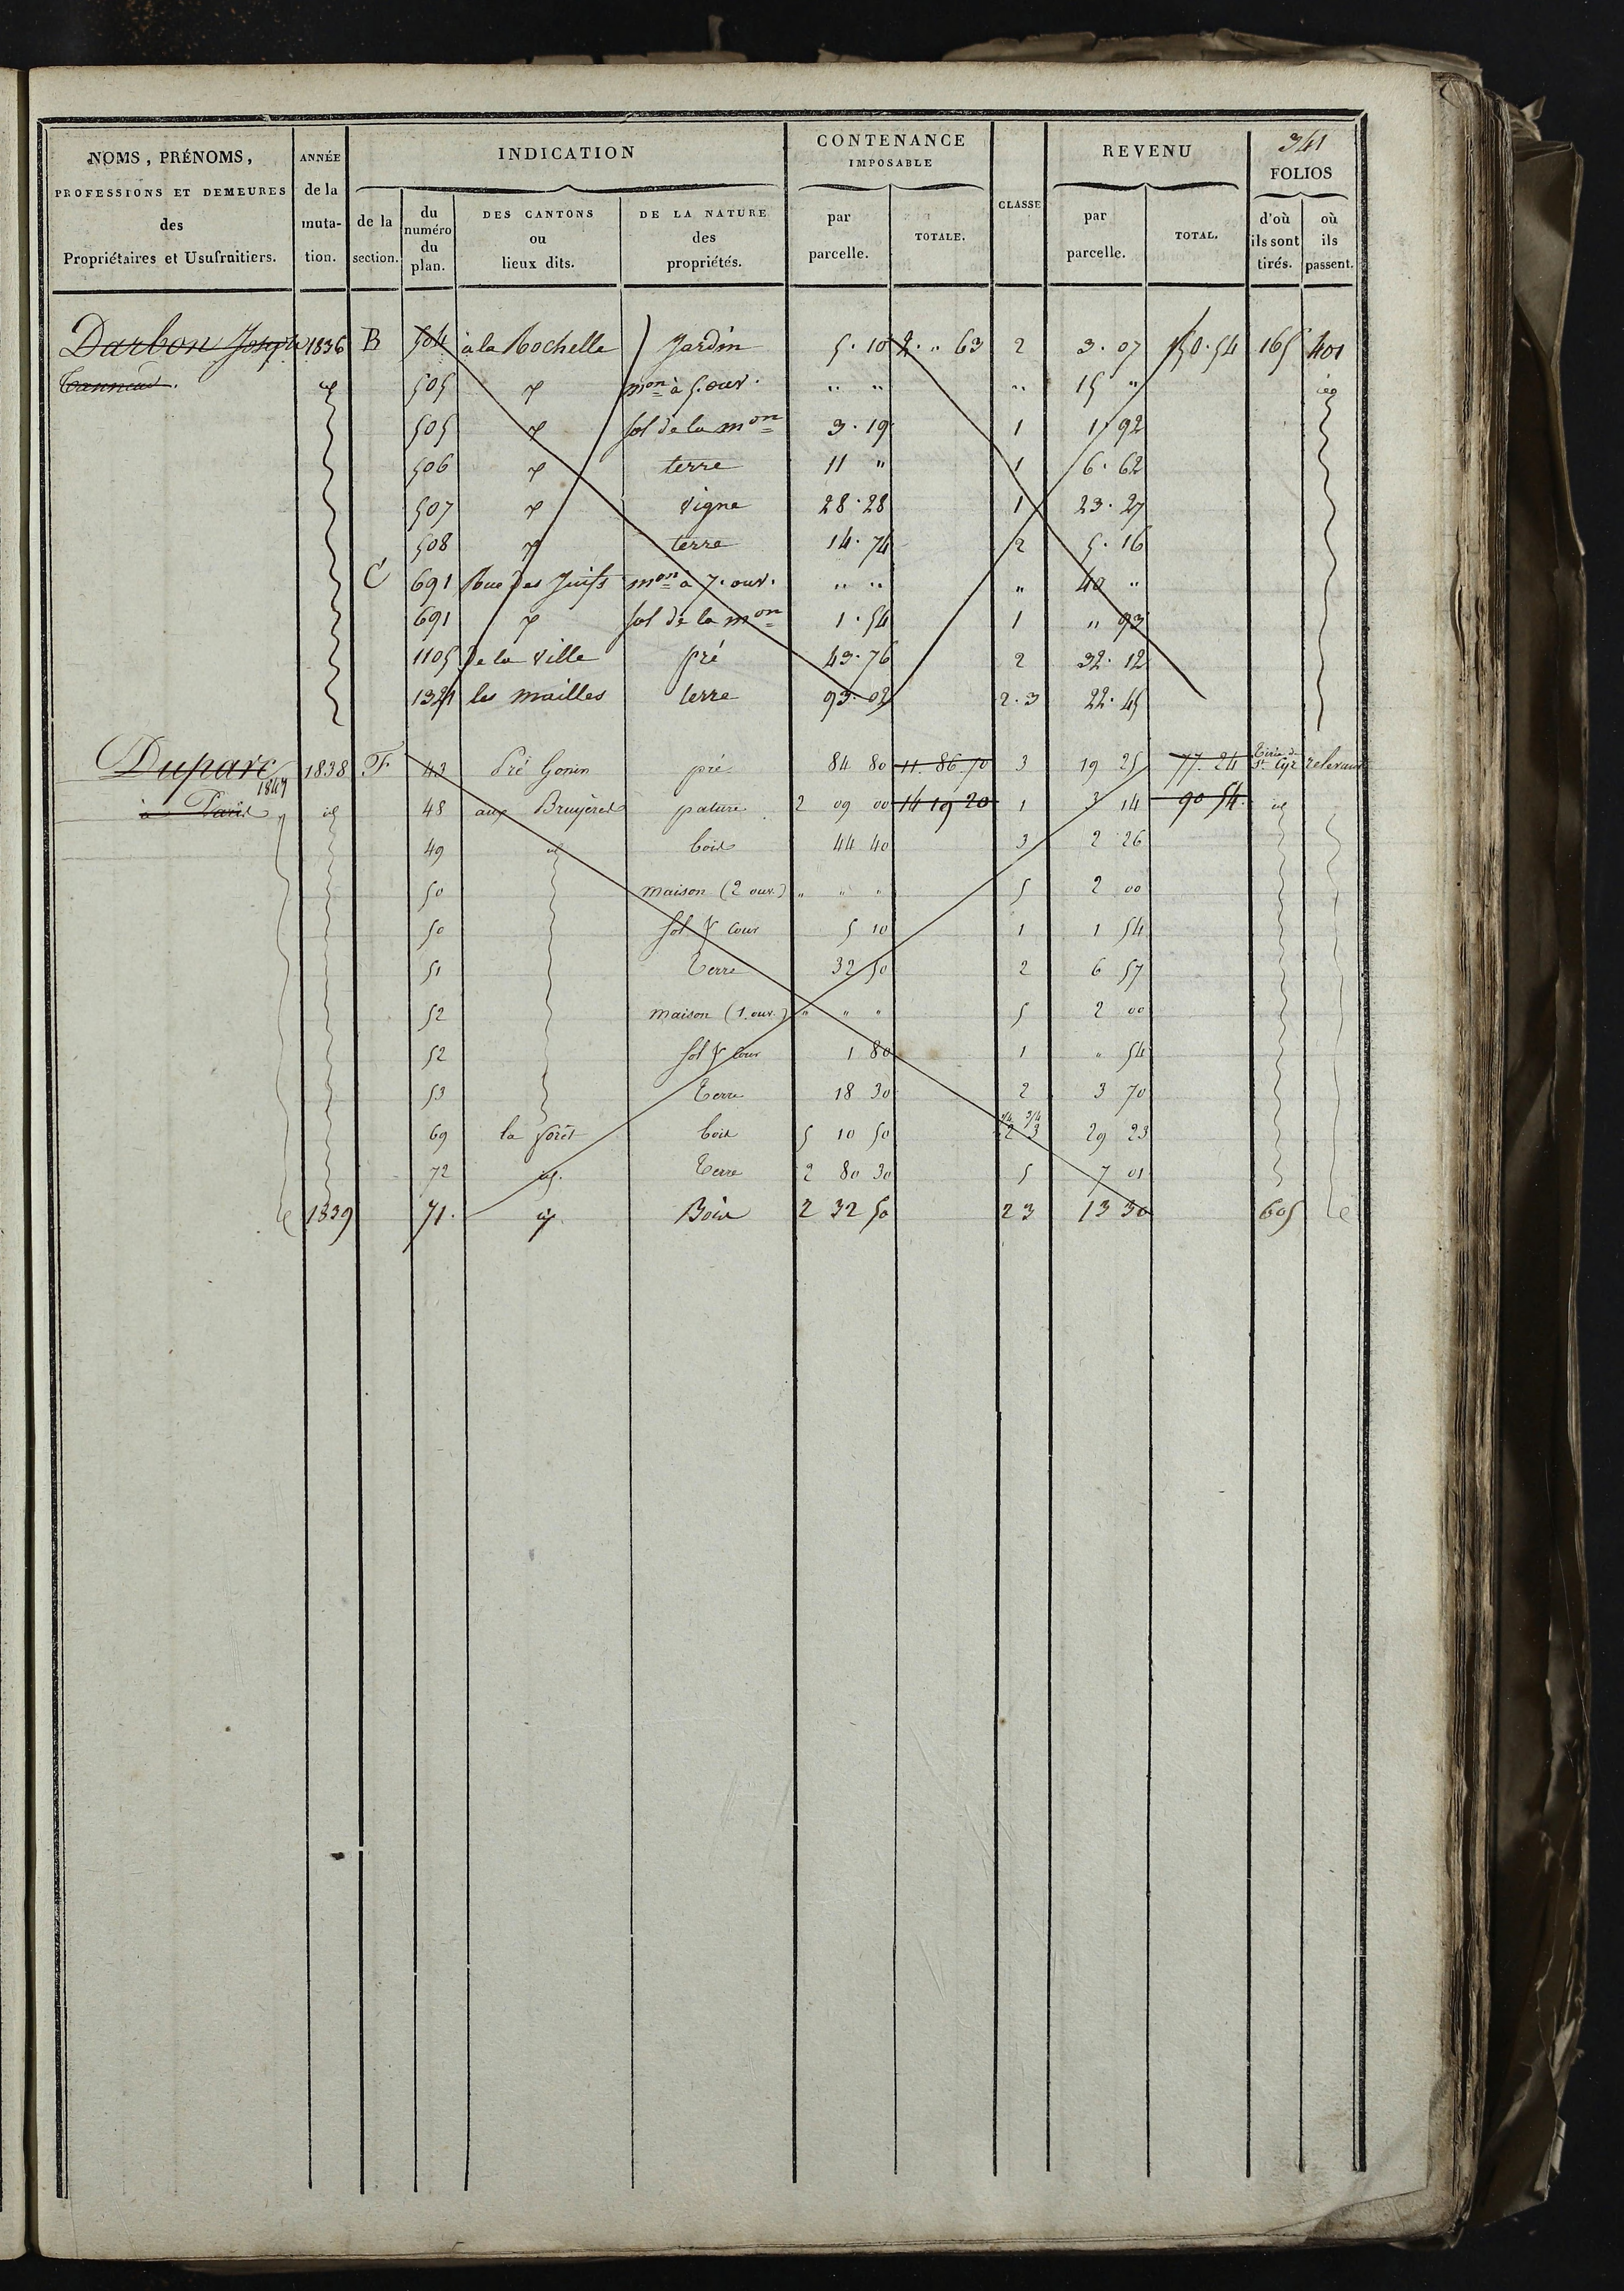 341
NOMS, PRÉNOMS, PROFESSIONS ET DEMEURES des Propriétaires et Usufruitiers.
ANNÉE de la muta- tion.
INDICATION
de la section.
du numéro du plan.
DES CANTONS ou lieux dits.
DE LA NATURE des propriétés.
CONTENANCE IMPOSABLE
par parcelle.
TOTALE.
CLASSE
REVENU
par parcelle.
TOTAL.
FOLIOS
d'où ils sont tirés.
où ils passent.
Darbon Joseph 1836 B 504 à la Rochelle Jardin 5.10 2. " 63 2 3.07 150.54 165 401
Tanneur. id 505 id mon à 5. ouv. " " " 15 " id
505 id sol de la mon 3.19 1 1 92
506 id terre 11 " 1 6.62
507 id vigne 28.28 1 23.27
508 id terre 14.74 2 5.16
C 691 Rue des Juifs mon à 7. ouv. " " " 40 "
691 id sol de la mon 1.54 1 " 93
1105 De la Ville pré 43.76 2 32.12
1321 les mailles terre 93.02 2.3 22.45
Duparc 1838 F 43 Pré Gonin pré 84 80 11.86.70 3 19 25 77.24 Tirés de St. Cyr relevant
1849
à Paris id 48 aux Bruyères pature 2 09 00 14 19 20 1 3 14 90 54. id
49 id bois 44 40 3 2 26
50 maison (2 ouv.) " " " 5 2 00
50 sol & cour 5 10 1 1 54
51 Terre 32 50 2 6 57
52 maison (1. ouv.) " " " 5 2 00
52 sol & cour 1 80 1 " 54
53 Terre 18 30 2 3 70
69 la forêt bois 5 10 50 1/4 3/4 2 3 29 23
72 id. Terre 2 80 30 5 7 01
1839 71. id Bois 2 32 50 2 3 13 30 605